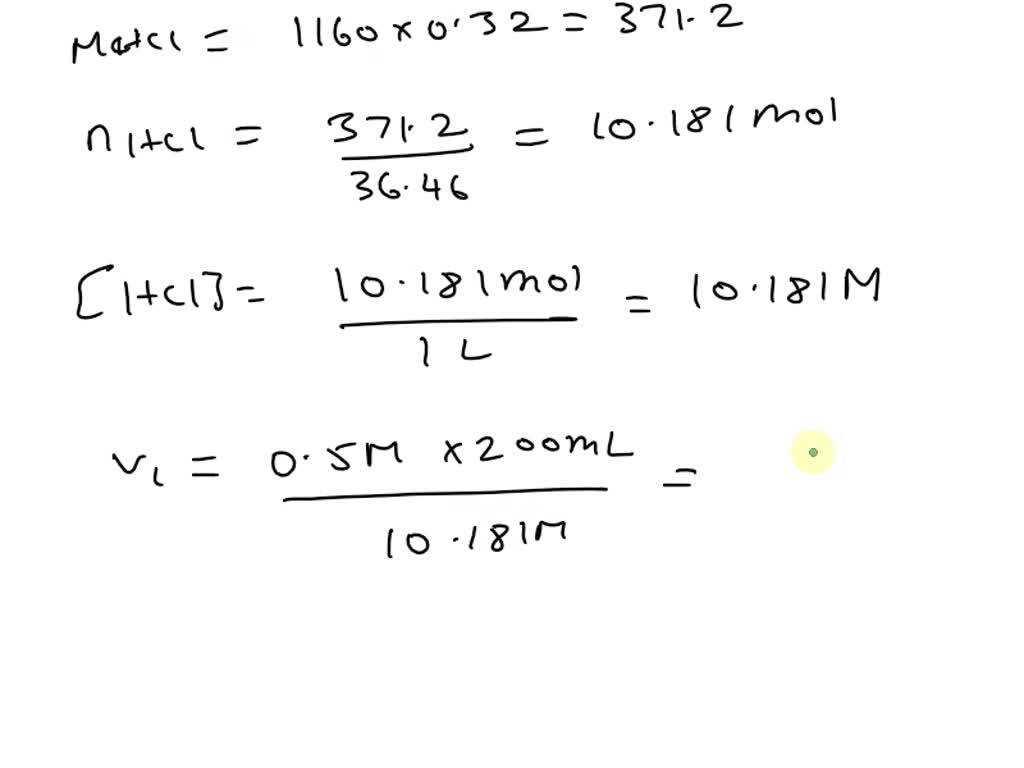 mHCl = 1160 x 0.32 = 371.2
nHCl = 371.2 / 36.46 = 10.181 mol
[HCl] = 10.181 mol / 1 L = 10.181 M
V1 = 0.5M x 200mL / 10.181M =